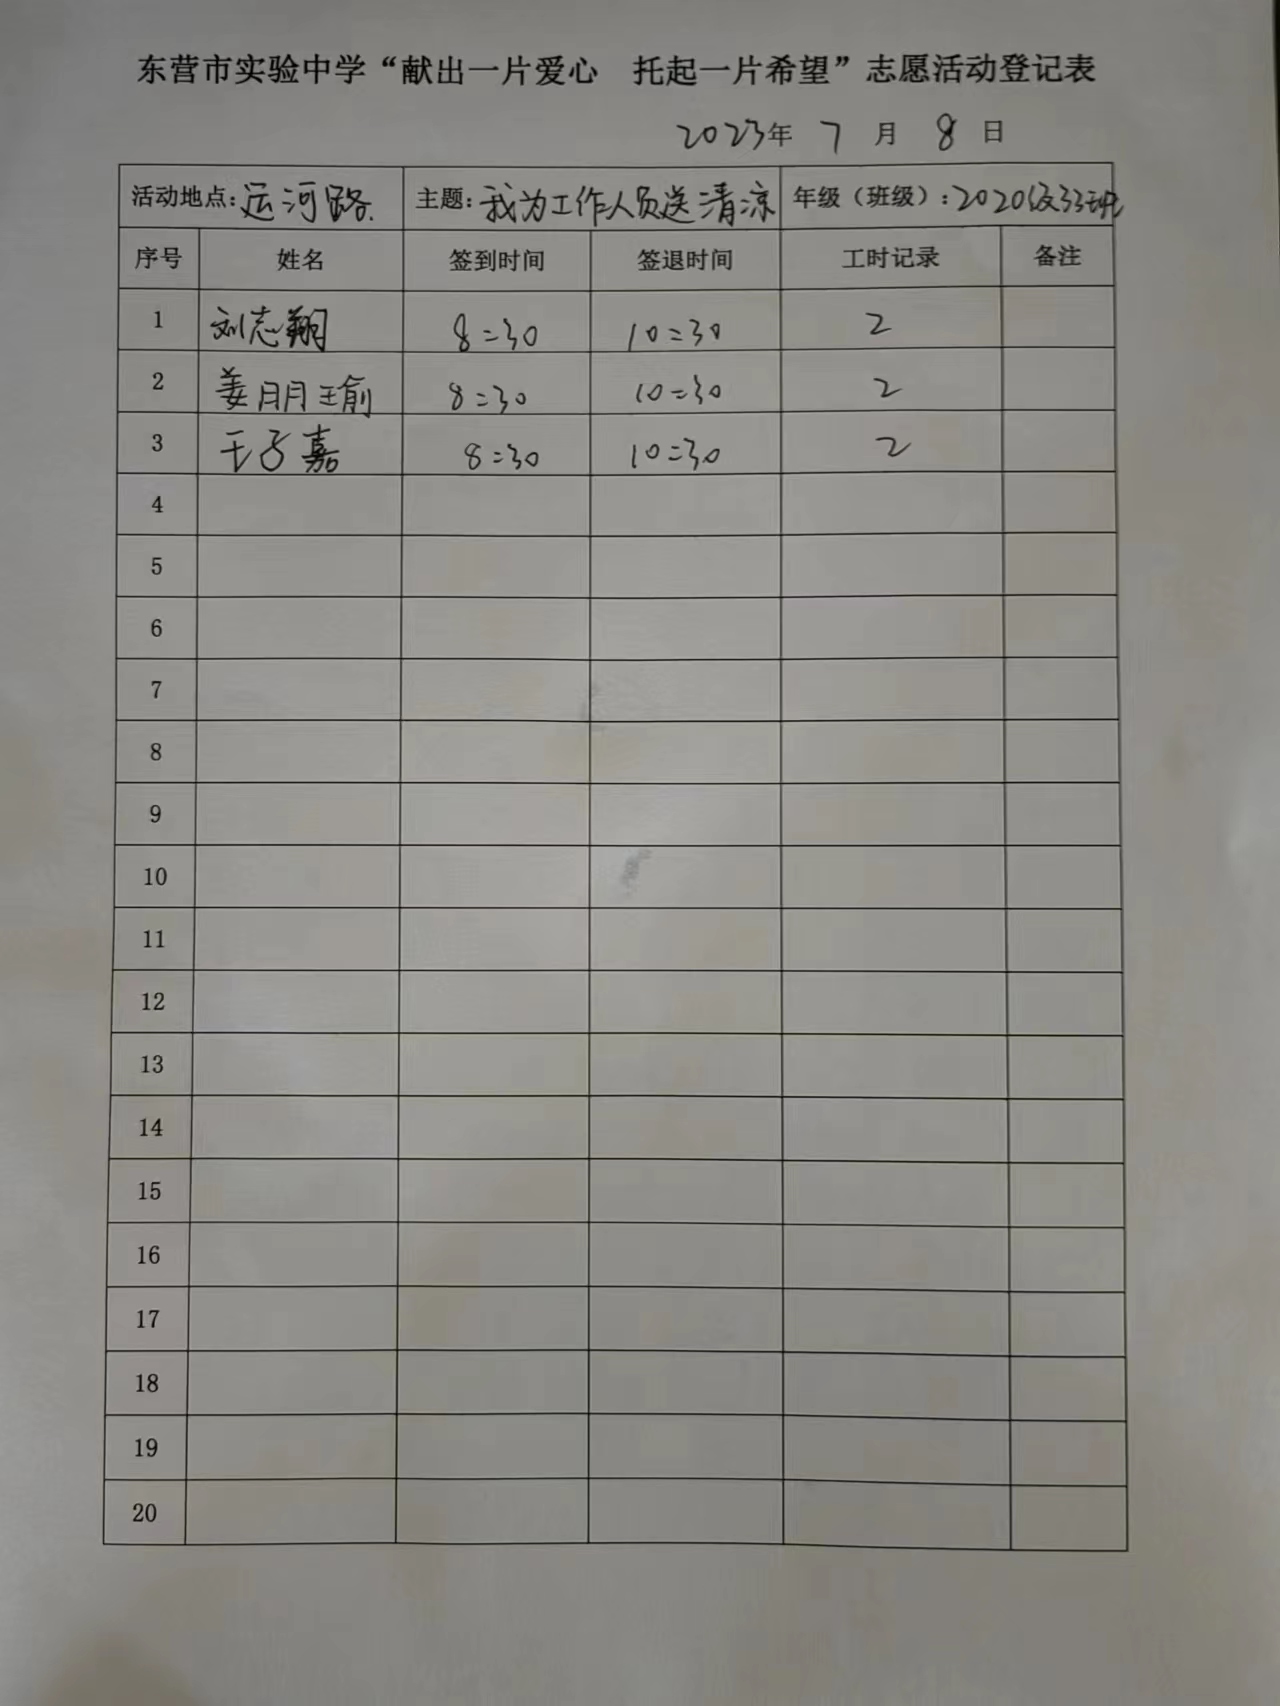 东营市实验中学“献出一片爱心　托起一片希望”志愿活动登记表
2023年 7 月 8 日
活动地点:运河路. 主题:我为工作人员送清凉 年级（班级）:2020级33班
序号 姓名 签到时间 签退时间 工时记录 备注
1 刘志翔 8:30 10:30 2
2 姜明瑜 8:30 10:30 2
3 王子嘉 8:30 10:30 2
4
5
6
7
8
9
10
11
12
13
14
15
16
17
18
19
20